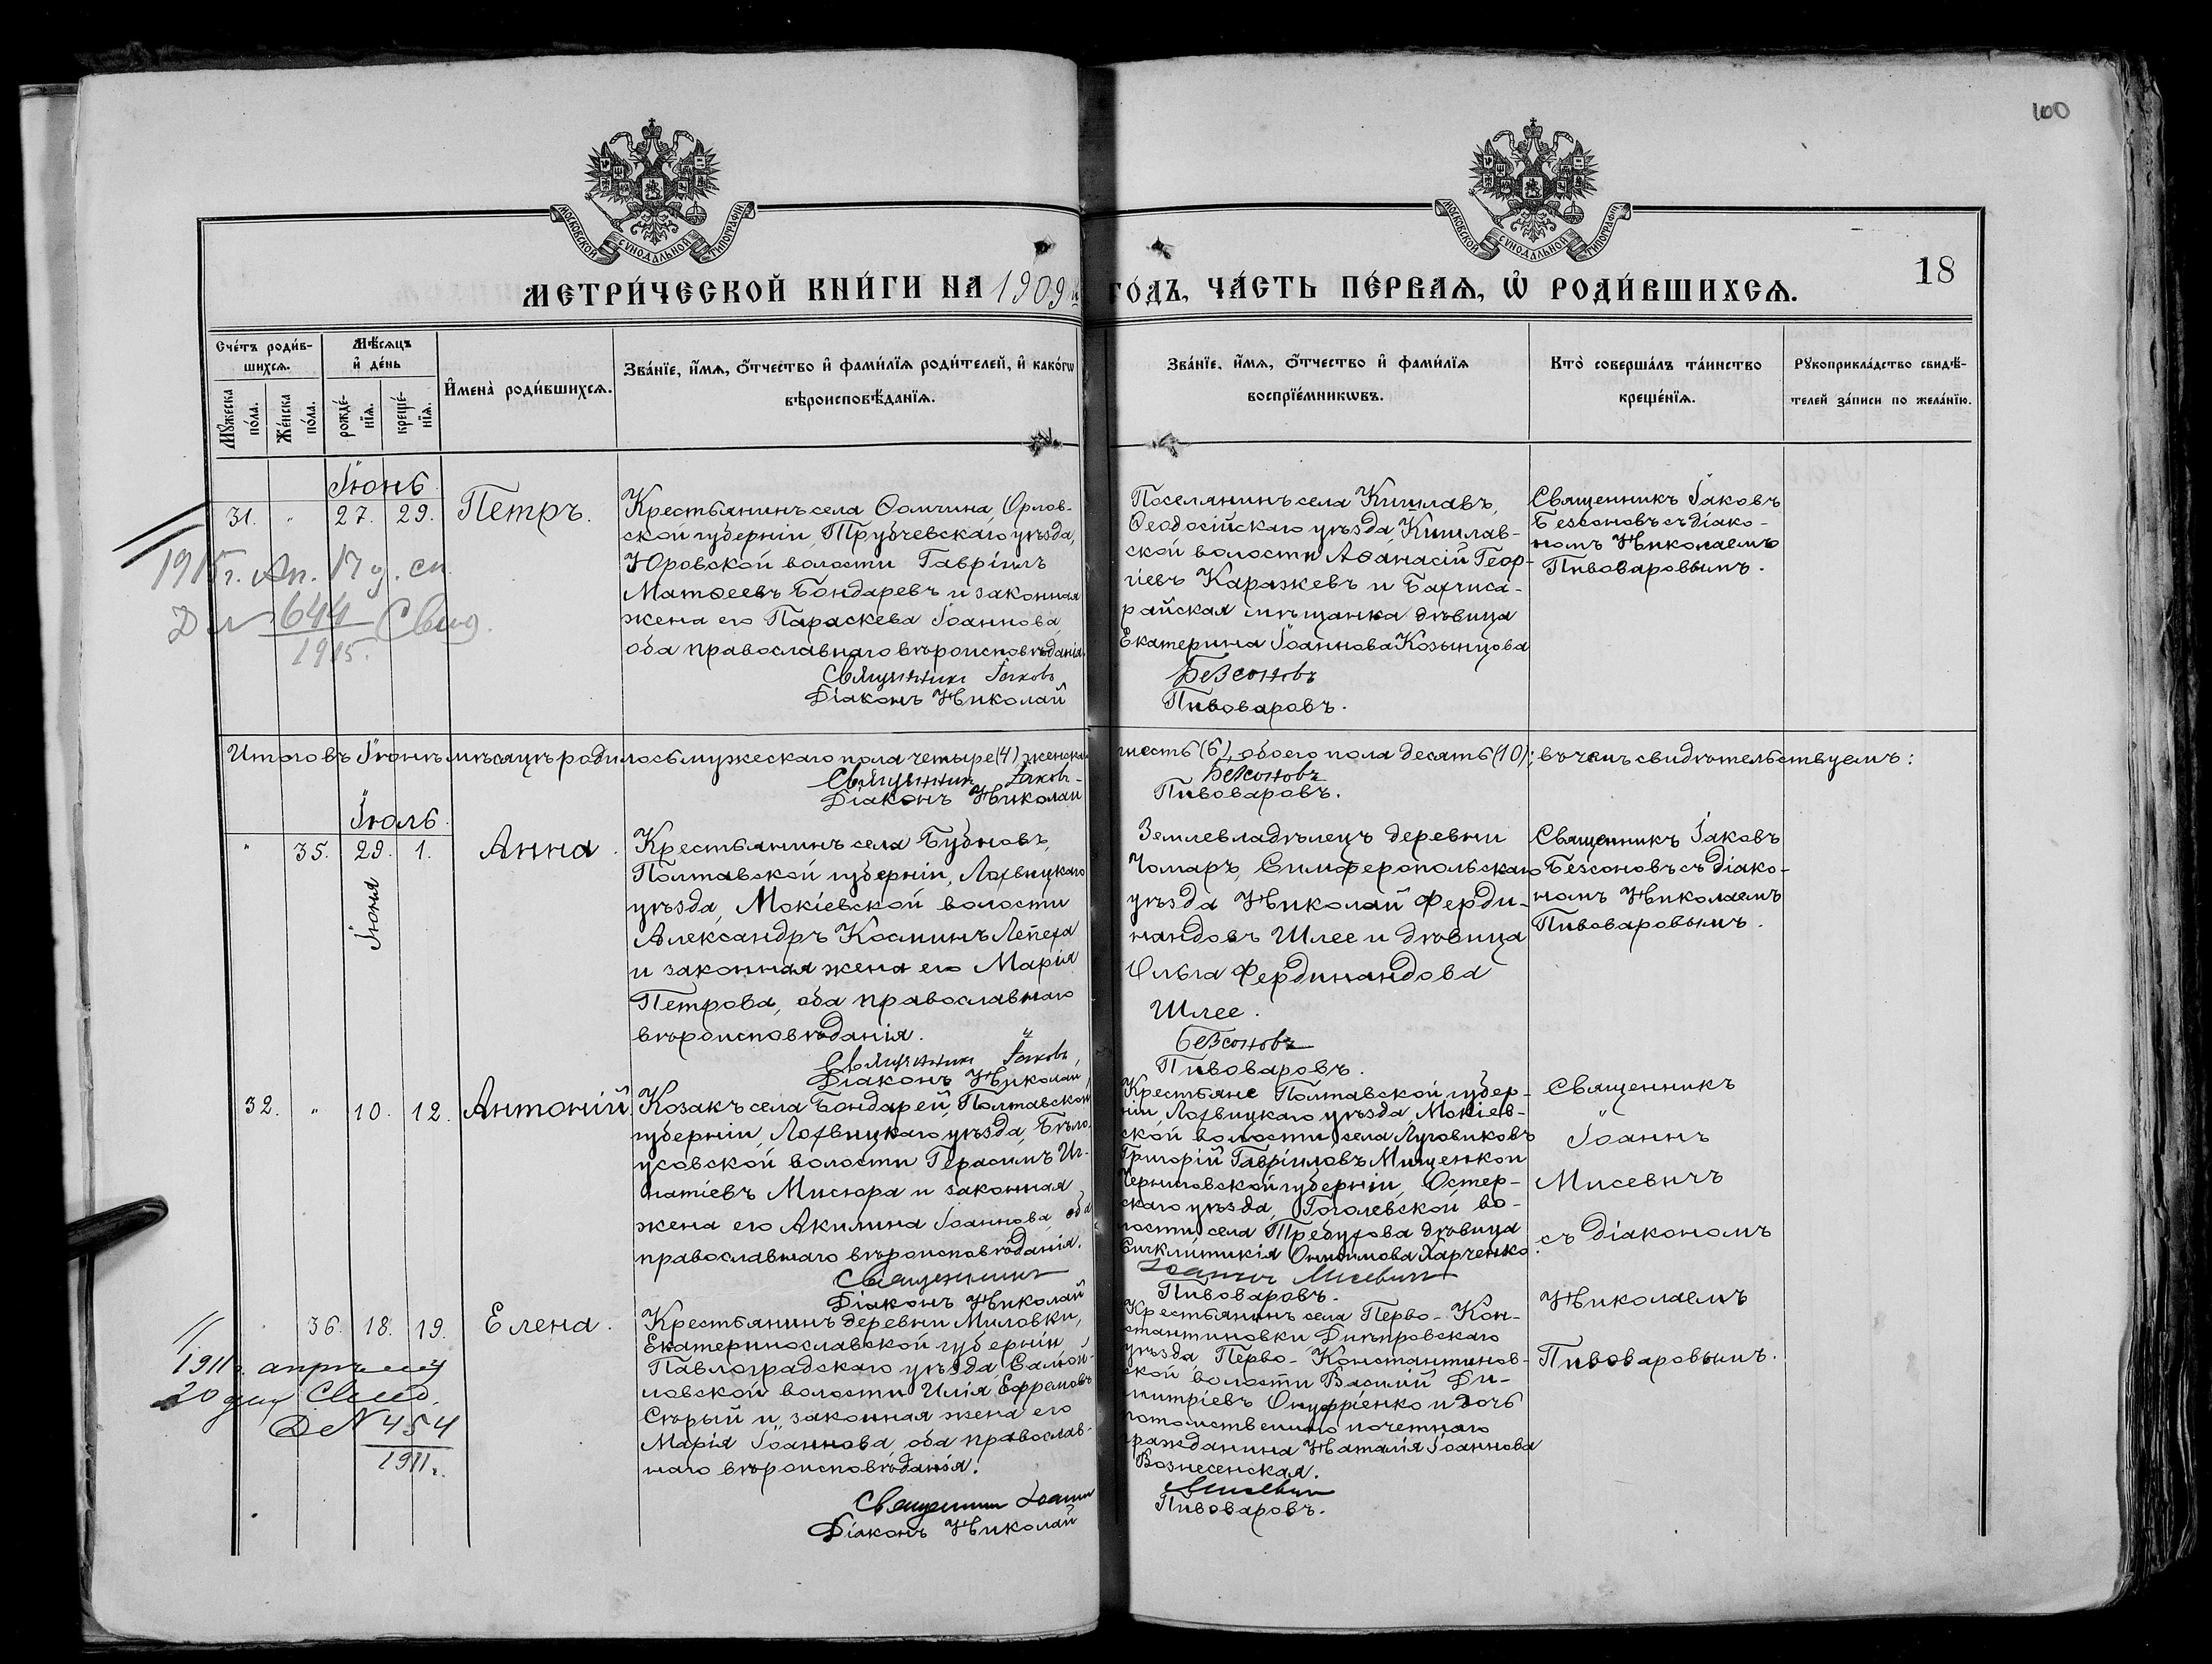 100
МОСКОВСКОЙ СѴНОДАЛЬНОЙ ТИПОГРАФІИ.
МОСКОВСКОЙ СѴНОДАЛЬНОЙ ТИПОГРАФІИ.
МЕТРИ́ЧЕСКОЙ КНИ́ГИ НА 1909 й
ГО́ДЪ, ЧА́СТЬ ПЕ́РВАѦ, Ѡ҆ РОДИ́ВШИХСѦ.
18
Сче́тъ роди́в-
шихсѧ.
Мꙋ́жеска по́ла.
Же́нска по́ла.
Мѣ́сѧцъ
и҆ де́нь
рожде́-
нїѧ.
креще́-
нїѧ.
И҆мена̀ роди́вшихсѧ.
Зва́нїе, и҆́мѧ, ѻ҆́тчество и҆ фами́лїѧ роди́телей, и҆ како́гѡ
вѣроисповѣ́данїѧ.
Зва́нїе, и҆́мѧ, ѻ҆́тчество и҆ фами́лїѧ
воспрїе́мникѡвъ.
Кто̀ соверша́лъ та́инство
креще́нїѧ.
Рꙋкоприкла́дство свидѣ́-
телей за́писи по жела́нїю.
Іюнь
31. " 27. 29. Петръ.
Крестьянинъ села Ѳомчина Орлов-
ской губерніи, Трубчевскаго уѣзда,
Юровской волости Гавріилъ
Матѳеевъ Бондаревъ и законная
жена его Параскева Іоаннова,
оба православнаго вѣроисповѣданія.
Священникъ Іаковъ
Діаконъ Николай
Поселянинъ села Кишлавъ,
Ѳеодосійскаго уѣзда, Кишлав-
ской волости Аѳанасій Геор-
гіевъ Каражевъ и Бахчиса-
райская мѣщанка дѣвица
Екатерина Іоаннова Козынцова
Безсоновъ
Пивоваровъ.
Священникъ Іаковъ
Безсоновъ съ діако-
номъ Николаемъ
Пивоваровымъ.
1915 г. Ап. 17 д. си
Д № 644 Свид.
1915.
Итого въ Іюнѣ мѣсяцѣ родилось мужескаго пола четыре (4) женска
шесть (6), обоего пола десять (10); въ чемъ свидѣтельствуемъ:
Священникъ Іаковъ
Діаконъ Николай
Безсоновъ
Пивоваровъ.
Іюль
" 35. 29. 1. Анна.
Іюня
Крестьянинъ села Бубновъ,
Полтавской губерніи, Лохвицкаго
уѣзда, Мокіевской волости
Александръ Косминъ Лепеха
и законная жена его Марія
Петрова, оба православнаго
вѣроисповѣданія.
Священникъ Іаковъ
Діаконъ Николай
Землевладѣлецъ деревни
Чомаръ, Симферопольскаго
уѣзда Николай Ферди-
нандовъ Шлее и дѣвица
Ольга Фердинандова
Шлее.
Безсоновъ
Пивоваровъ.
Священникъ Іаковъ
Безсоновъ съ діако-
номъ Николаемъ
Пивоваровымъ.
32. " 10. 12. Антоній
Козакъ села Бондарей, Полтавской
губерніи, Лохвицкаго уѣзда, Бѣло
усовской волости Герасимъ Иг-
натіевъ Мисюра и законная
жена его Акилина Іоаннова, оба
православнаго вѣроисповѣданія.
Священникъ
Діаконъ Николай
Крестьяне Полтавской губер-
ніи Лохвицкаго уѣзда, Мокіев-
ской волости, села Луговиковъ
Григорій Гавріиловъ Мищенко и
Черниговской губерніи, Остер-
скаго уѣзда, Гоголевской во-
лости, села Требухова дѣвица
Сигклитикія Онисимова Харченко.
Іоаннъ Мисевичъ
Пивоваровъ.
Священникъ
Іоаннъ
Мисевичъ
съ діакономъ
Николаемъ
Пивоваровымъ.
36. 18. 19. Елена.
Крестьянинъ деревни Миловки,
Екатеринославской губерніи,
Павлоградскаго уѣзда, Самой-
ловской волости Илія Ефремовъ
Сѣрый и законная жена его
Марія Іоаннова, оба православ-
наго вѣроисповѣданія.
Священникъ Іоаннъ
Діаконъ Николай
Крестьянинъ села Перво-Кон-
стантиновки Днѣпровскаго
уѣзда, Перво-Константинов-
ской волости Василій Ди-
митріевъ Онуфріенко и дочь
потомственнаго почетнаго
гражданина Наталія Іоаннова
Вознесенская.
Мисевичъ
Пивоваровъ.
1911 г. апрѣля
20 дня Свид.
Д № 454
1911 г.